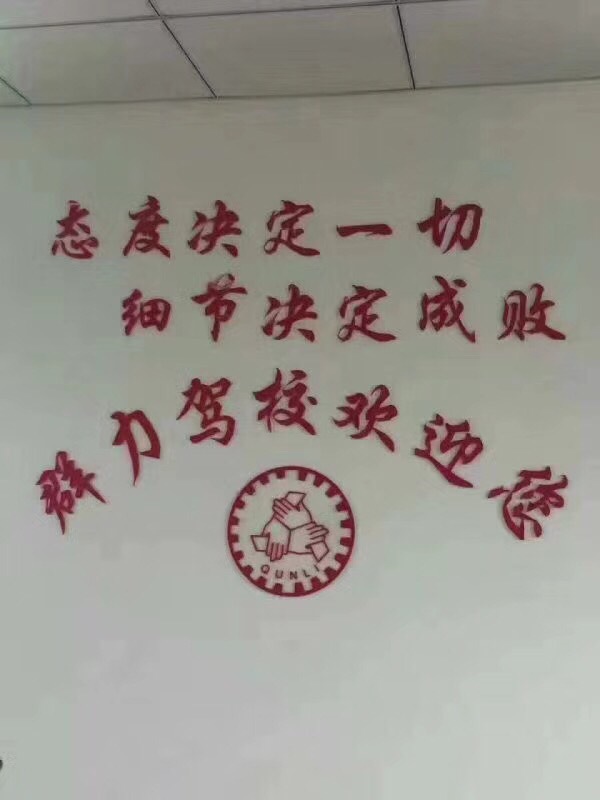 态度决定一切
细节决定成败
群力驾校欢迎您
QUNLI